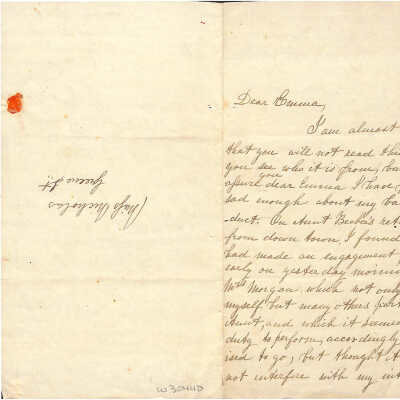 Dear Emma,
I am almost
that you will not read this
you see who it is from, bu
assure you dear Emma I have
sad enough about my ba
duct. On Aunt
from down town, I found
had made an engagement
early on yesterday mornin
Mrs Morgan which not only
myself but many others
Aunt, and which it seemed
duty to perform, accordingly
ised to go, but thought
not interfere with my int
Miss Nicholas
Greene St.